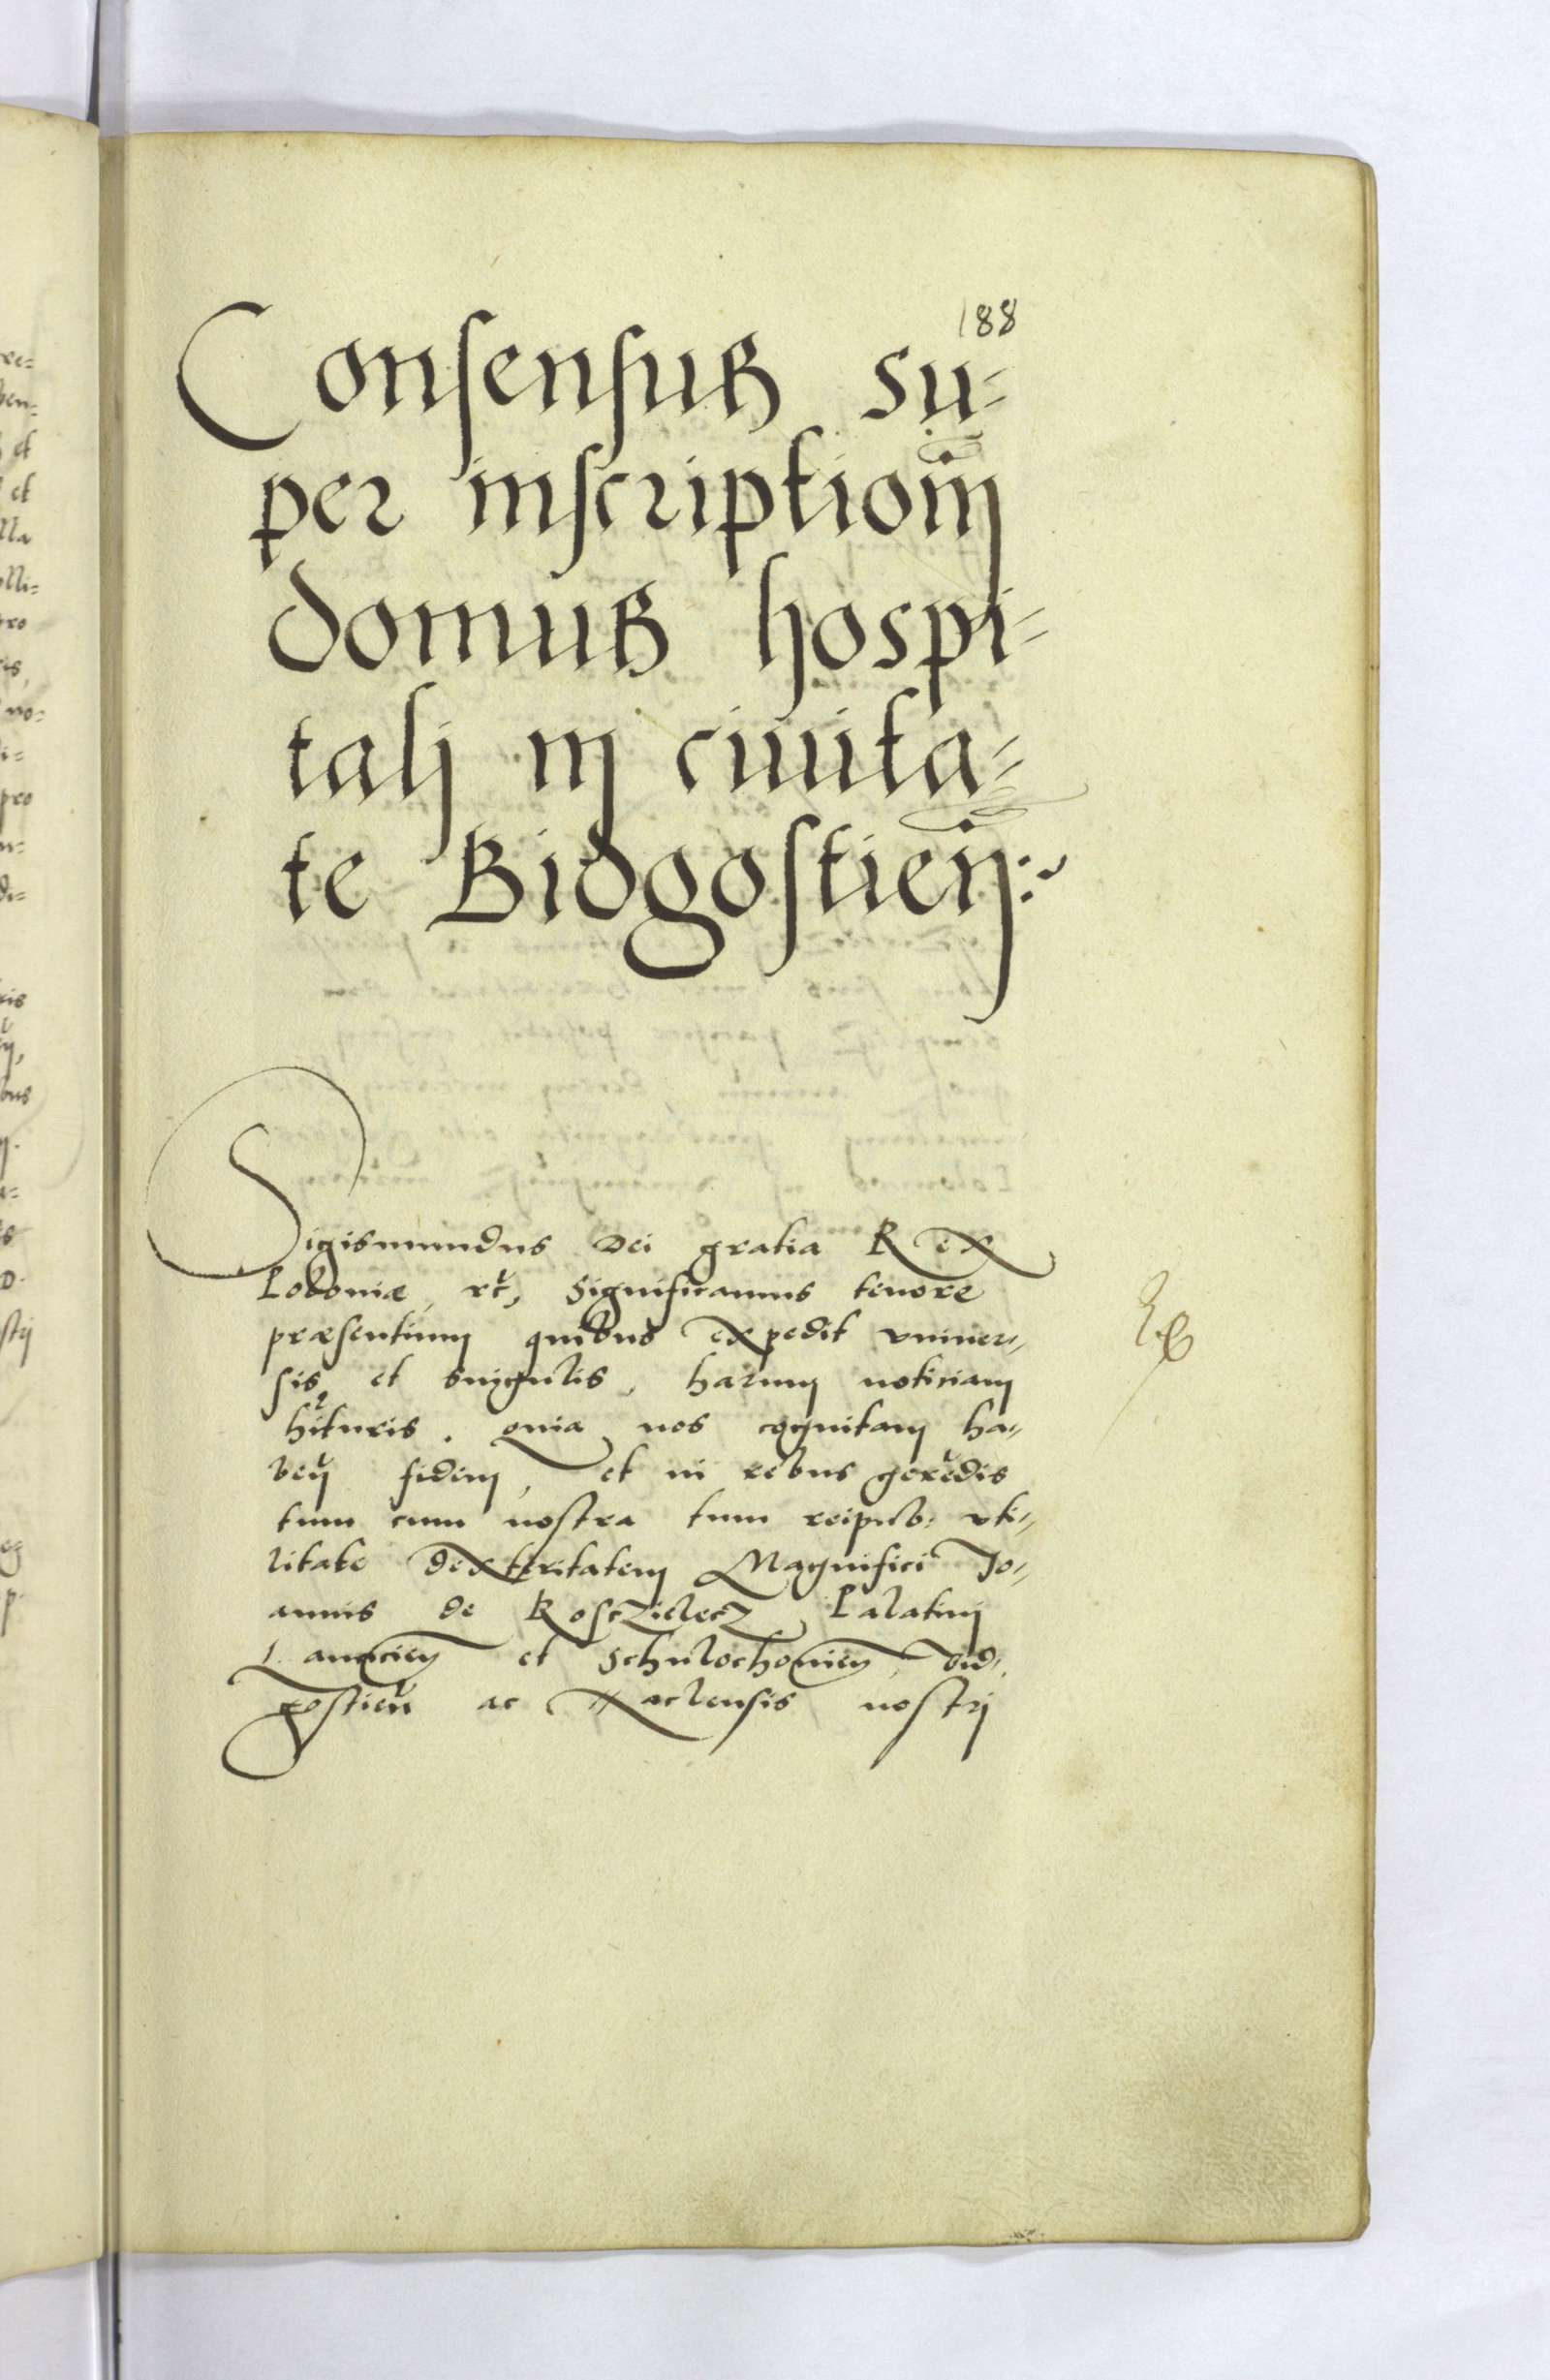 188
Consensus su-
per inscriptiom̃
domus hospi-
talj in ciuita-
te Bidgostien̄
Sigismundus Dei gratia Rex
Poloniæ, rc̃, Significamus tenore
præsentium quibus expedit vniuer-
sis et singulis, harum noticiam
hituris. Quia nos cognitam ha-
ben̄ fidem, et in rebus geren̄dis
tum cum nostra tum reipub: vti-
litate dexteritatem Magnifici Jo-
annis de Rosczielecz Palatini
Lancicien̄ et Schulochowien̄, Bid-
gostien̄ ac Naclensis nostrj